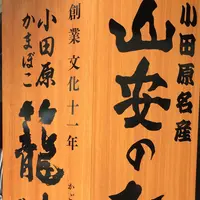 小田原名産
山安の
創業文化十一年
小田原
かまぼこ
籠